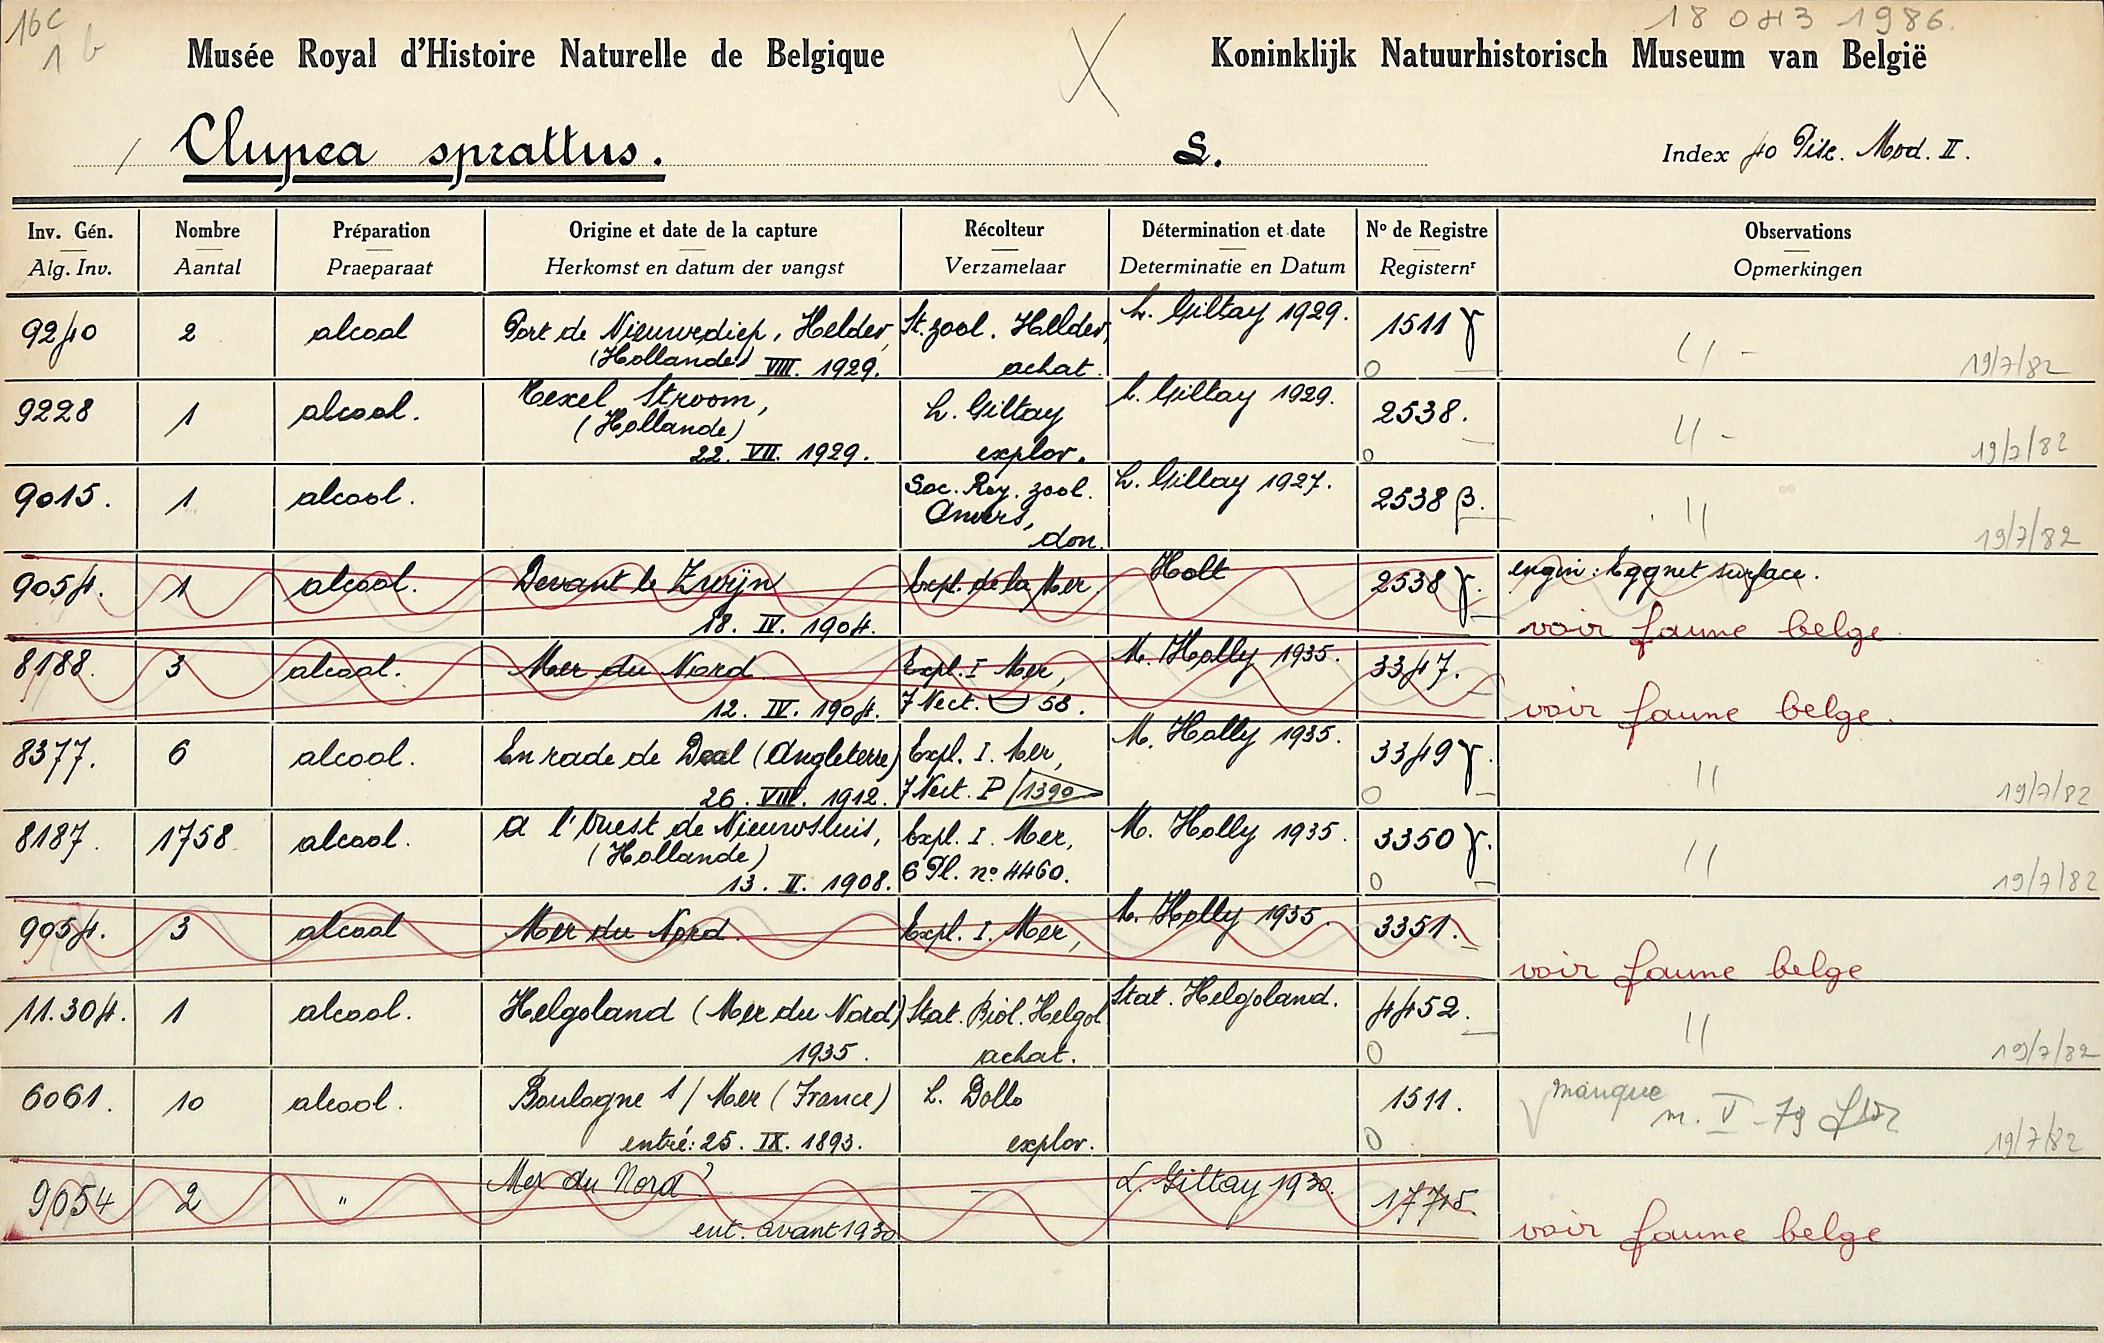 16c
1 b
18 043 1986.
Musée Royal d'Histoire Naturelle de Belgique
Koninklijk Natuurhistorisch Museum van België
Clupea sprattus.
Index 40 Pisc. Mod. II.
Inv. Gén. Nombre Préparation Origine et date de la capture Récolteur Détermination et date Nº de Registre Observations
Alg. Inv. Aantal Praeparaat Herkomst en datum der vangst Verzamelaar Determinatie en Datum Registernr Opmerkingen
9240 2 alcool Port de Nieuwediep, Helder, St. zool. Helder, L. Giltay 1929. 1511 γ
(Hollande) VIII. 1929. achat. 0 19/7/82
9228 1 alcool. Texel Stroom, L. Giltay L. Giltay 1929. 2538.
(Hollande)
22. VII. 1929. explor. 0 19/7/82
9015. 1 alcool. Soc. Roy. zool. L. Giltay 1927. 2538 β.
Anvers,
don. 19/7/82
9054. 1 alcool. Devant le Zwijn Expl. de la Mer. Holt 2538 γ. engin: Eggnet surface.
18. IV. 1904. voir faune belge.
8188. 3 alcool. Mer du Nord. Expl. I Mer, M. Holly 1935. 3347.
12. IV. 1904. 7 Nect. 58. voir faune belge.
8377. 6 alcool. En rade de Deal (Angleterre) Expl. I. Mer, M. Holly 1935. 3349 γ. "
26. VIII. 1912. 7 Nect. P 1390 0 19/7/82
8187. 1758 alcool. A l'Ouest de Nieuwsluis, Expl. I. Mer, M. Holly 1935. 3350 γ. "
(Hollande)
13. II. 1908. 6 Pl. nº 4460. 0 19/7/82
9054. 3 alcool Mer du Nord. Expl. I. Mer, M. Holly 1935. 3351.
voir faune belge
11.304. 1 alcool. Helgoland (Mer du Nord) Stat. Biol. Helgol Stat. Helgoland. 4452. "
1935. achat. 0 19/7/82
6061. 10 alcool. Boulogne s/Mer (France) L. Dollo 1511. manque
m. V - 79
entré: 25. IX. 1893. explor. 0 19/7/82
9054 2 " Mer du Nord? - L. Giltay 1930. 17715.
ent. avant 1930 voir faune belge